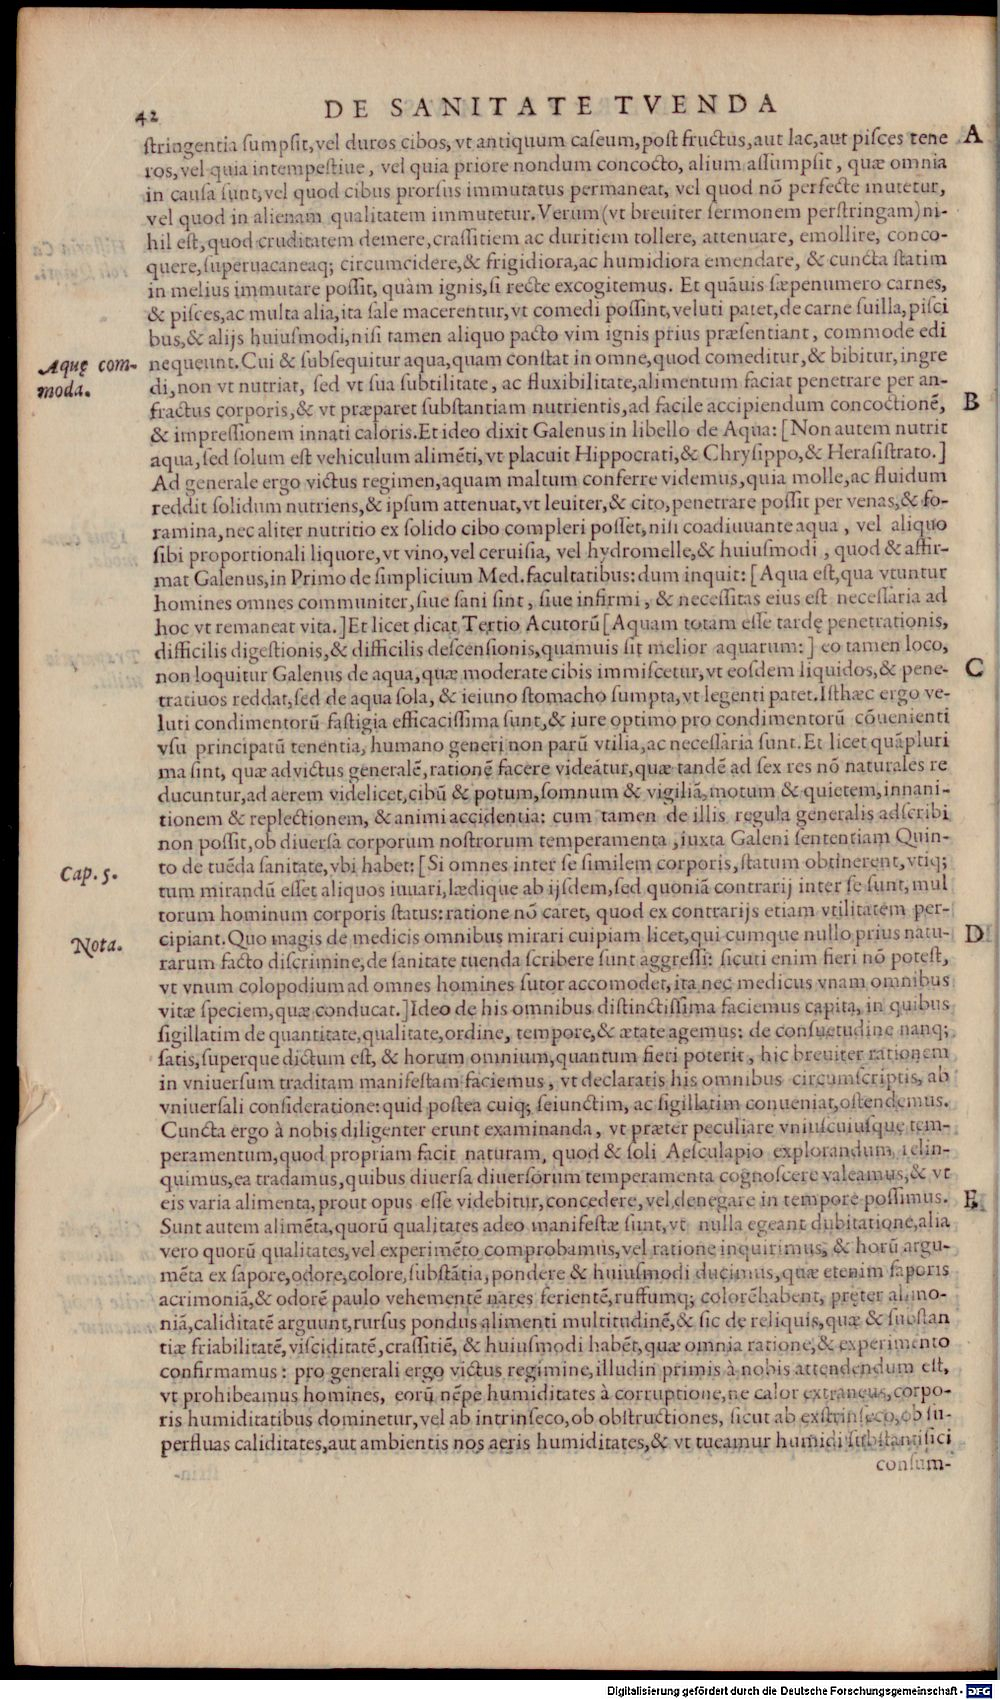 42
DE SANITATE TVENDA
ſtringentia ſumpſit, vel duros cibos, vt antiquum caſeum, poſt fructus, aut lac, aut piſces tene
A
ros, vel quia intempeſtiue, vel quia priore nondum concocto, alium aſſumpſit, quæ omnia
in cauſa ſunt, vel quod cibus prorſus immutatus permaneat, vel quod nō perfecte mutetur,
vel quod in alienam qualitatem immutetur. Verum (vt breuiter ſermonem perſtringam) ni-
hil eſt, quod cruditatem demere, craſſitiem ac duritiem tollere, attenuare, emollire, conco-
quere, ſuperuacaneaq; circumcidere, & frigidiora, ac humidiora emendare, & cuncta ſtatim
in melius immutare poſſit, quàm ignis, ſi recte excogitemus. Et quāuis ſæpenumero carnes,
& piſces, ac multa alia, ita ſale macerentur, vt comedi poſſint, veluti patet, de carne ſuilla, piſci
bus, & alijs huiuſmodi, niſi tamen aliquo pacto vim ignis prius præſentiant, commode edi
Aquę com-
moda.
nequeunt. Cui & ſubſequitur aqua, quam conſtat in omne, quod comeditur, & bibitur, ingre
di, non vt nutriat, ſed vt ſua ſubtilitate, ac fluxibilitate, alimentum faciat penetrare per an-
fractus corporis, & vt præparet ſubſtantiam nutrientis, ad facile accipiendum concoctionē,
B
& impreſſionem innati caloris. Et ideo dixit Galenus in libello de Aqua: [Non autem nutrit
aqua, ſed ſolum eſt vehiculum alimēti, vt placuit Hippocrati, & Chryſippo, & Heraſiſtrato.]
Ad generale ergo victus regimen, aquam maltum conferre videmus, quia molle, ac fluidum
reddit ſolidum nutriens, & ipſum attenuat, vt leuiter, & cito, penetrare poſſit per venas, & fo-
ramina, nec aliter nutritio ex ſolido cibo compleri poſſet, niſi coadiuuante aqua, vel aliquo
ſibi proportionali liquore, vt vino, vel ceruiſia, vel hydromelle, & huiuſmodi, quod & affir-
mat Galenus, in Primo de ſimplicium Med. facultatibus: dum inquit: [Aqua eſt, qua vtuntur
homines omnes communiter, ſiue ſani ſint, ſiue infirmi, & neceſſitas eius eſt neceſſaria ad
hoc vt remaneat vita.] Et licet dicat, Tertio Acutorū [Aquam totam eſſe tardę penetrationis,
difficilis digeſtionis, & difficilis deſcenſionis, quamuis ſit melior aquarum:] eo tamen loco,
non loquitur Galenus de aqua, quæ moderate cibis immiſcetur, vt eoſdem liquidos, & pene-
C
tratiuos reddat, ſed de aqua ſola, & ieiuno ſtomacho ſumpta, vt legenti patet. Iſthæc ergo ve-
luti condimentorū faſtigia efficaciſſima ſunt, & iure optimo pro condimentorū cōuenienti
vſu principatū tenentia, humano generi non parū vtilia, ac neceſſaria ſunt. Et licet quāpluri
ma ſint, quæ ad victus generalē, rationē facere videātur, quæ tandē ad ſex res nō naturales re
ducuntur, ad aerem videlicet, cibū & potum, ſomnum & vigiliā, motum & quietem, innani-
tionem & repletionem, & animi accidentia: cum tamen de illis regula generalis adſcribi
non poſſit, ob diuerſa corporum noſtrorum temperamenta, iuxta Galeni ſententiam Quin-
Cap. 5.
to de tuēda ſanitate, vbi habet: [Si omnes inter ſe ſimilem corporis, ſtatum obtinerent, vtiq;
tum mirandū eſſet aliquos iuuari, lædique ab ijſdem, ſed quoniā contrarij inter ſe ſunt, mul
torum hominum corporis ſtatus: ratione nō caret, quod ex contrarijs etiam vtilitatem per-
Nota.
cipiant. Quo magis de medicis omnibus mirari cuipiam licet, qui cumque nullo prius natu-
D
rarum facto diſcrimine, de ſanitate tuenda ſcribere ſunt aggreſſi: ſicuti enim fieri nō poteſt,
vt vnum colopodium ad omnes homines ſutor accomodet, ita nec medicus vnam omnibus
vitæ ſpeciem, quæ conducat.] Ideo de his omnibus diſtinctiſſima faciemus capita, in quibus
ſigillatim de quantitate, qualitate, ordine, tempore, & ætate agemus: de conſuetudine nanq;
ſatis, ſuperque dictum eſt, & horum omnium, quantum fieri poterit, hic breuiter rationem
in vniuerſum traditam manifeſtam faciemus, vt declaratis his omnibus circumſcriptis, ab
vniuerſali conſideratione: quid poſtea cuiq; ſeiunctim, ac ſigillatim conueniat, oſtendemus.
Cuncta ergo à nobis diligenter erunt examinanda, vt præter peculiare vniuſcuiuſque tem-
peramentum, quod propriam facit naturam, quod & ſoli Aeſculapio explorandum, relin-
quimus, ea tradamus, quibus diuerſa diuerſorum temperamenta cognoſcere valeamus, & vt
eis varia alimenta, prout opus eſſe videbitur, concedere, vel denegare in tempore poſſimus.
E
Sunt autem alimēta, quorū qualitates adeo manifeſtæ ſunt, vt nulla egeant dubitatione, alia
vero quorū qualitates, vel experimēto comprobamus, vel ratione inquirimus, & horū argu-
mēta ex ſapore, odore, colore, ſubſtātia, pondere & huiuſmodi ducimus, quæ etenim ſaporis
acrimoniā, & odorē paulo vehementē nares ferientē, ruffumq; colorē habent, pręter alimo-
niā, caliditatē arguunt, rurſus pondus alimenti multitudinē, & ſic de reliquis, quæ & ſubſtan
tiæ friabilitatē, viſciditatē, craſſitiē, & huiuſmodi habēt, quæ omnia ratione, & experimento
confirmamus: pro generali ergo victus regimine, illud in primis à nobis attendendum eſt,
vt prohibeamus homines, eorū nēpe humiditates à corruptione, ne calor extraneus, corpo-
ris humiditatibus dominetur, vel ab intrinſeco, ob obſtructiones, ſicut ab exſtrinſeco, ob ſu-
perfluas caliditates, aut ambientis nos aeris humiditates, & vt tueamur humidi ſubſtantifici
conſum-
Digitalisierung gefördert durch die Deutsche Forschungsgemeinschaft - DFG